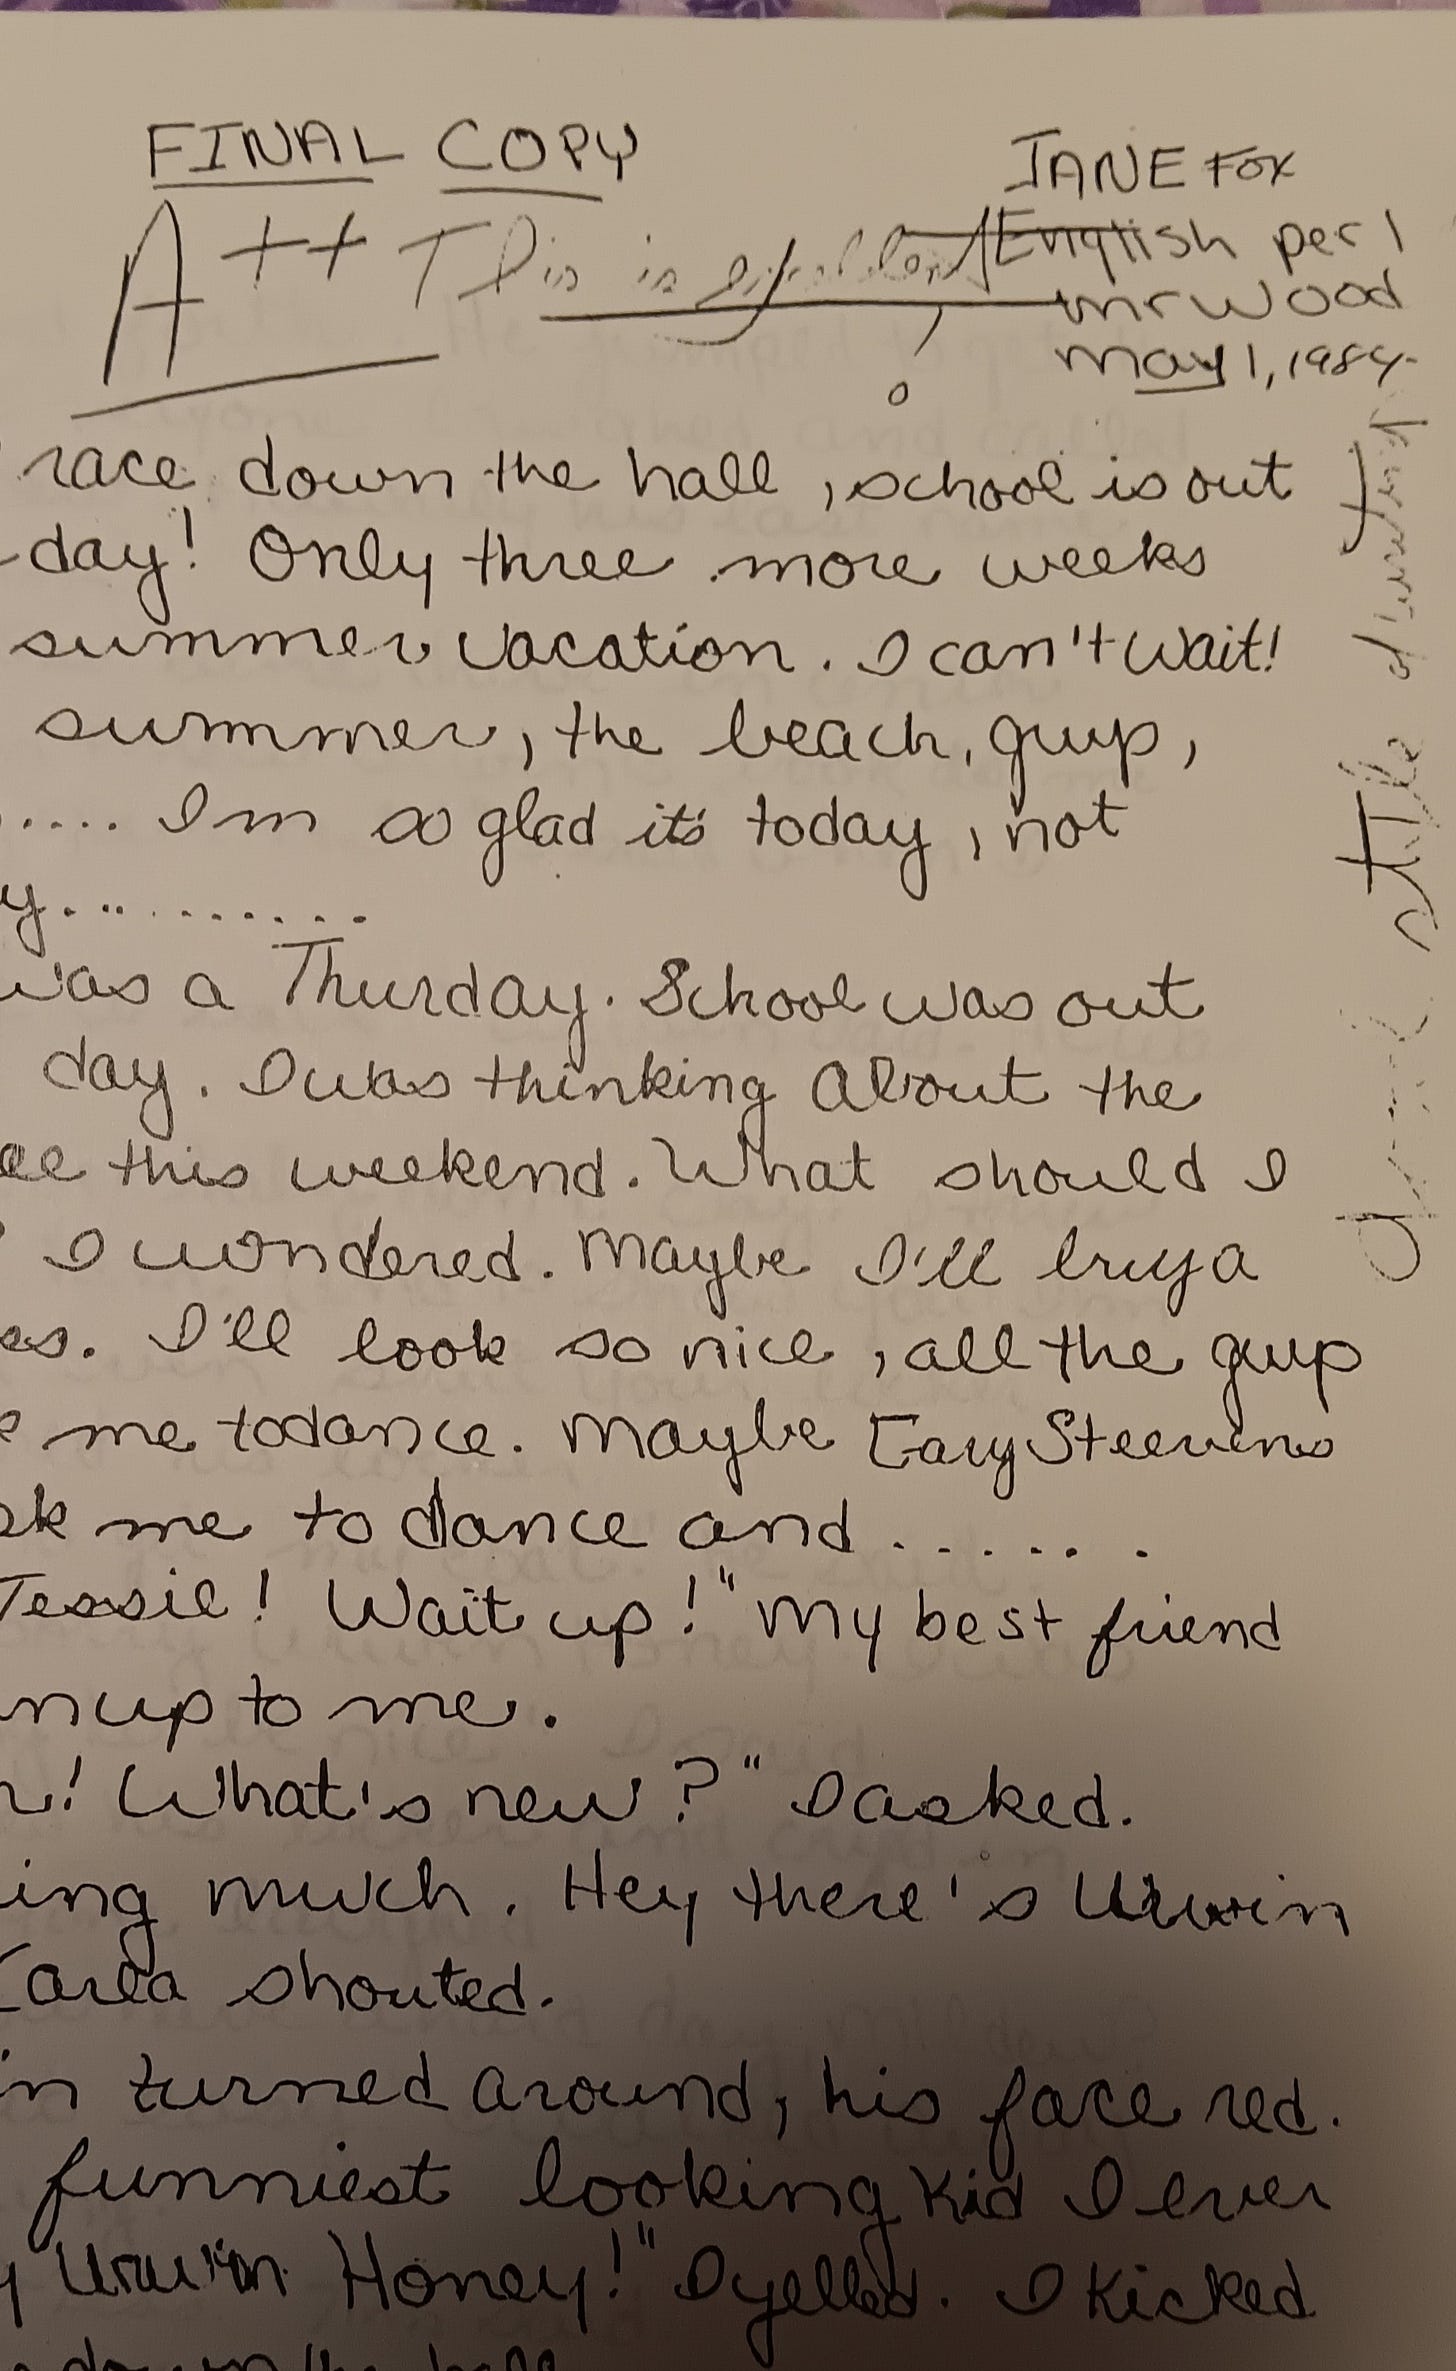 FINAL COPY
JANE FOX
A++ This is excellent!
English per 1
Mr Wood
May 1, 1984
race down the hall, school is out
day! Only three more weeks
summer vacation. I can't wait!
summer, the beach, guys,
..... Im so glad it's today, not
y...........
was a Thurday. School was out
day. I was thinking about the
this weekend. What should I
I wondered. Maybe I'll buy a
I'll look so nice, all the guys
me to dance. Maybe Gary Steevens
ask me to dance and ......
Tessie! Wait up!" My best friend
n up to me.
! What's new?" I asked.
ing much. Hey there's Urwin
Carla shouted.
in turned around, his face red.
funniest looking kid I ever
y Urwin Honey!" I yelled. I kicked
down the hall
Good style of writing